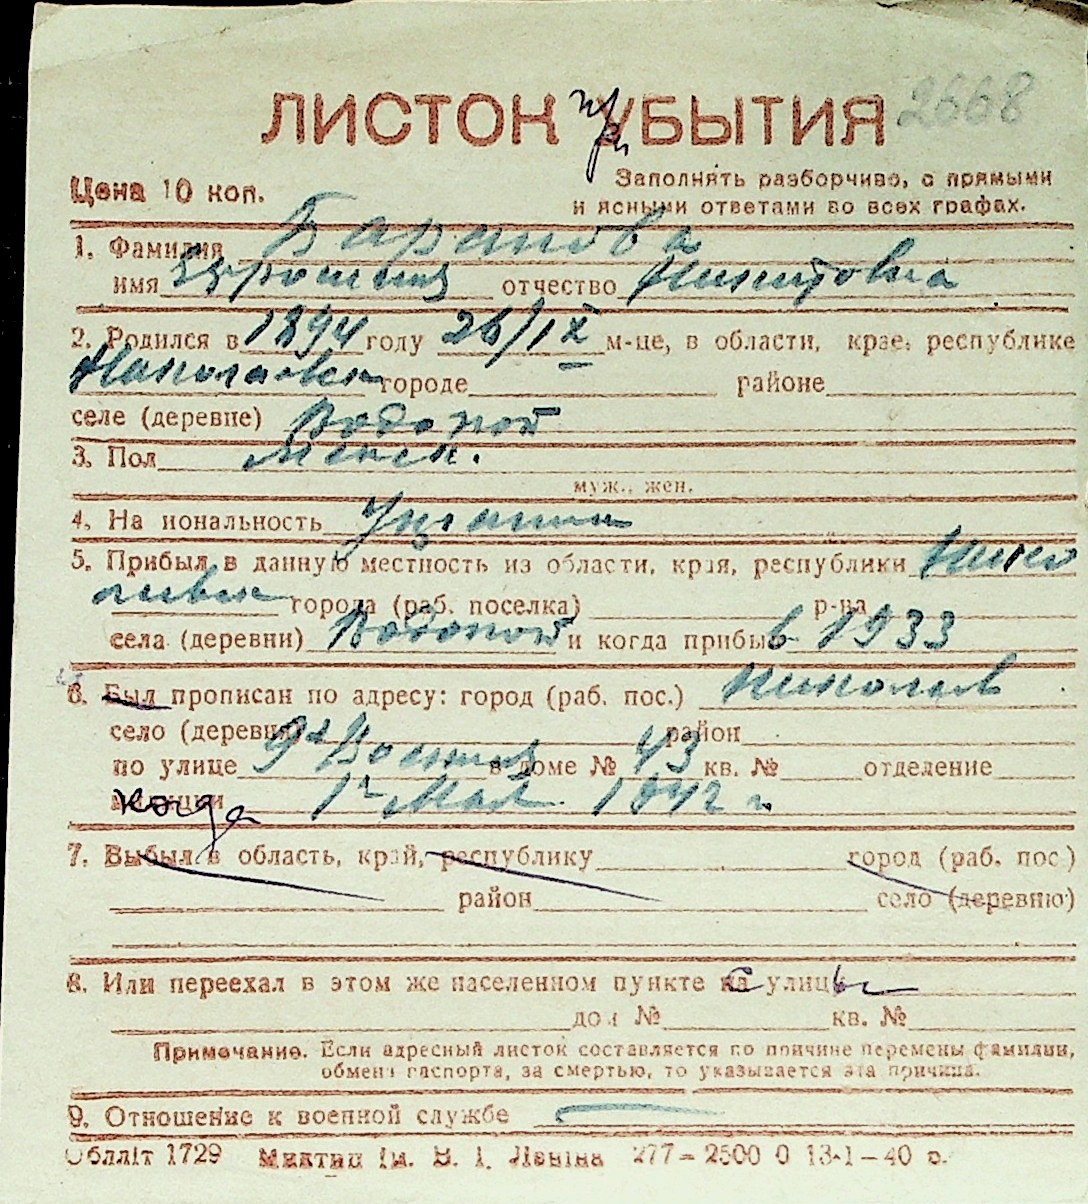 ЛИСТОК при УБЫТИЯ 2668
Цена 10 коп.
Заполнять разборчиво, с прямыми
и ясными ответами во всех графах.
1. Фамилия Баранова
имя отчество Никитовна
2. Родился в 1894 году 26/IX м-це, в области, крае, республике
Николаевск городе районе
селе (деревне) Водопой
3. Пол женск.
муж., жен.
4. На иональность Украинка
5. Прибыл в данную местность из области, края, республики Нико
лаевск города (раб. поселка) р-на
села (деревни) Водопой и когда прибыл в 1933
6. Был прописан по адресу: город (раб. пос.) Николаев
село (деревня) район
по улице 9я Военная в доме № 43 кв. № отделение
милиции когда 1го Мая 1942 г.
7. Выбыл в область, край, республику город (раб. пос.)
район село (деревню)
8. Или переехал в этом же населенном пункте на с улицы
дом № кв. №
Примечание. Если адресный листок составляется по причине перемены фамилии,
обмена паспорта, за смертью, то указывается эта причина.
9. Отношение к военной службе
Обллiт 1729 Миктип iм. В. I. Ленiна 277—2500 0 13-1—40 р.